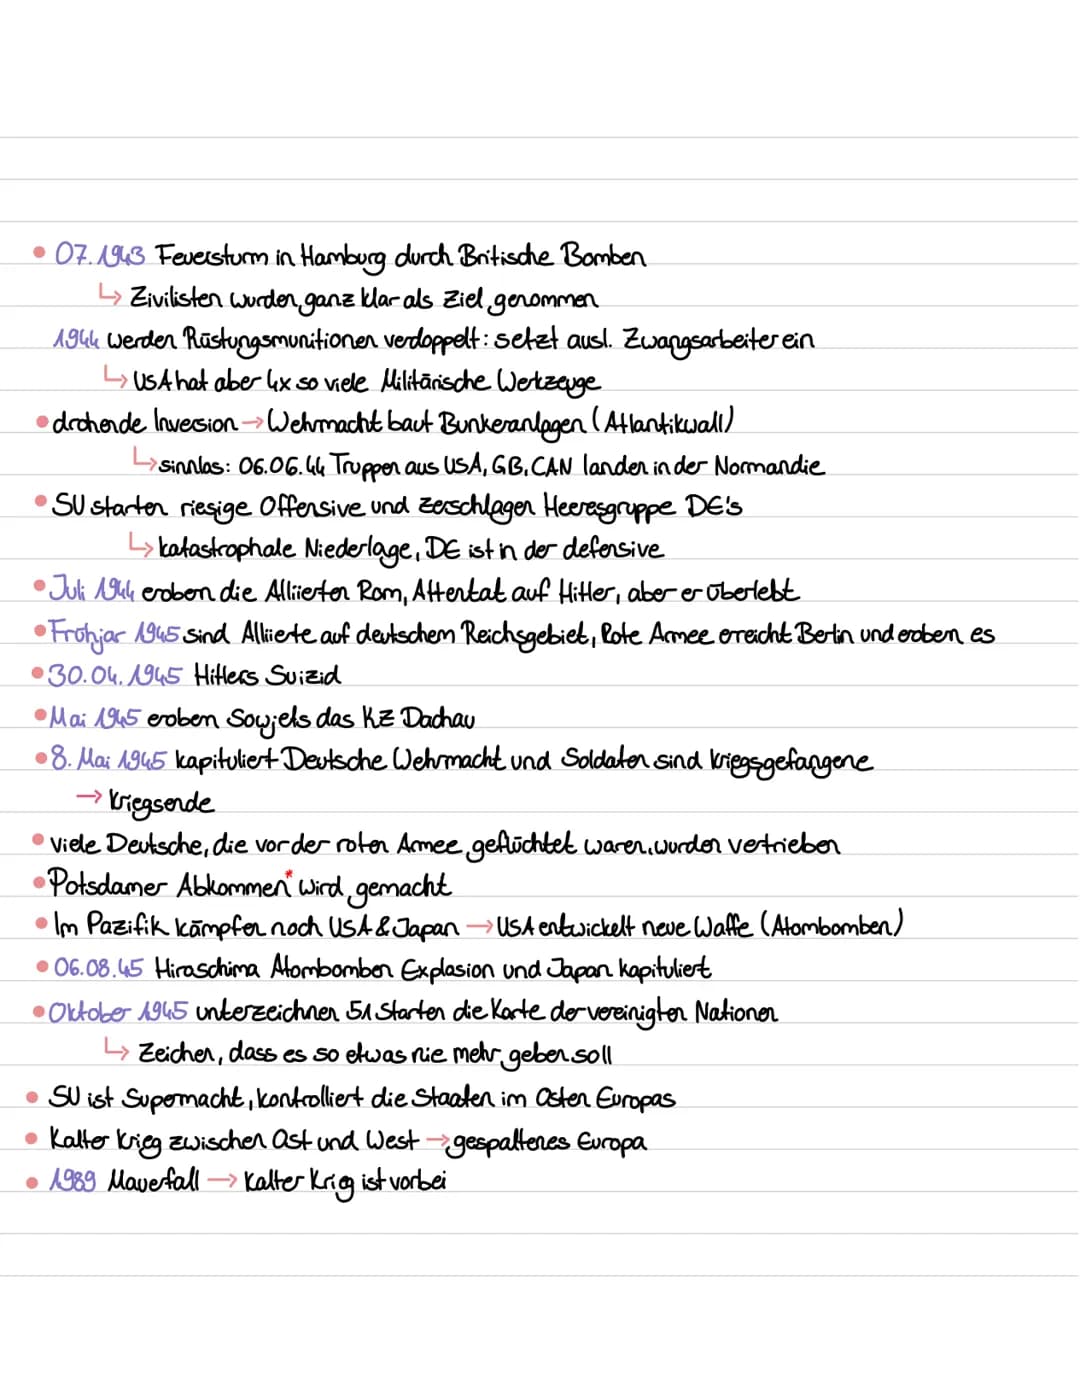 • 07.1943 Feuersturm in Hamburg durch Britische Bomben
↳ Zivilisten wurden ganz klar als Ziel genommen
1944 werden Rüstungsmunitionen verdoppelt: setzt ausl. Zwangsarbeiter ein
↳ USA hat aber 4x so viele Militärische Werkzeuge
• drohende Inversion → Wehrmacht baut Bunkeranlagen (Atlantikwall)
↳ sinnlos: 06.06.44 Truppen aus USA, GB, CAN landen in der Normandie
• SU starten riesige Offensive und zerschlagen Heeresgruppe DE's
↳ katastrophale Niederlage, DE ist in der defensive
• Juli 1944 eroben die Alliierten Rom, Attentat auf Hitler, aber er überlebt
• Frühjar 1945 sind Alliierte auf deutschem Reichsgebiet, Rote Armee erreicht Berlin und eroben es
• 30.04.1945 Hitlers Suizid
• Mai 1945 eroben Sowjets das KZ Dachau
• 8. Mai 1945 kapituliert Deutsche Wehrmacht und Soldaten sind Kriegsgefangene
→ Kriegsende
• viele Deutsche, die vor der roten Armee geflüchtet waren, wurden vertrieben
• Potsdamer Abkommen* wird gemacht
• Im Pazifik kämpfen noch USA & Japan → USA entwickelt neue Waffe (Atombomben)
• 06.08.45 Hiroschima Atombomben Explosion und Japan kapituliert
• Oktober 1945 unterzeichnen 51 Starten die Karte der vereinigten Nationen
↳ Zeichen, dass es so etwas nie mehr geben soll
• SU ist Supermacht, kontrolliert die Staaten im Osten Europas
• Kalter Krieg zwischen Ost und West → gespaltenes Europa
• 1989 Mauerfall → Kalter Krieg ist vorbei